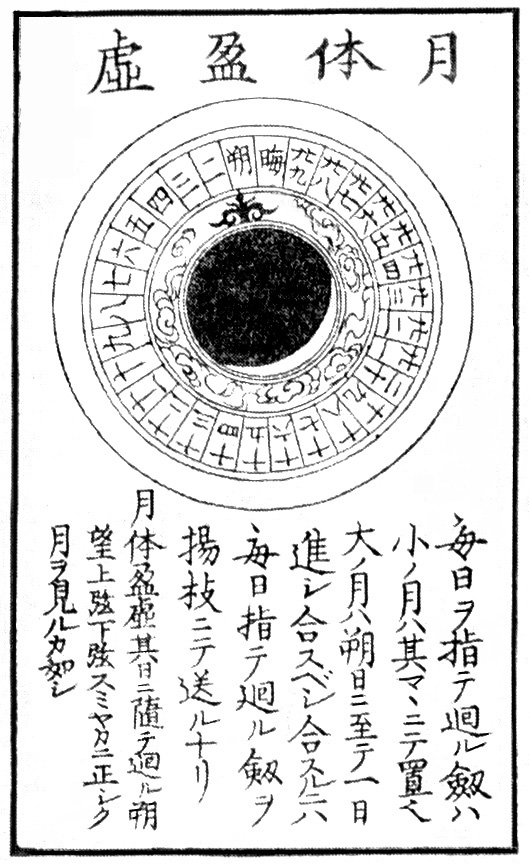 月体盈虚
朔 二 三 四 五 六 七 八 九 十 十一 十二 十三 十四 十五 十六 十七 十八 十九 二十 廿一 廿二 廿三 廿四 廿五 廿六 廿七 廿八 廿九 晦
毎日ヲ指テ廻ル劔ハ
小ノ月ハ其マヽニテ置ヘ
大ノ月ハ朔日ニ至テ一日
進シ合スベシ合スルニハ
毎日指テ廻ル劔ヲ
揚枝ニテ送ルナリ
月体盈虚其日ニ隨テ廻ル朔
望上弦下弦スミヤカニ正シク
月ヲ見ルカ如シ